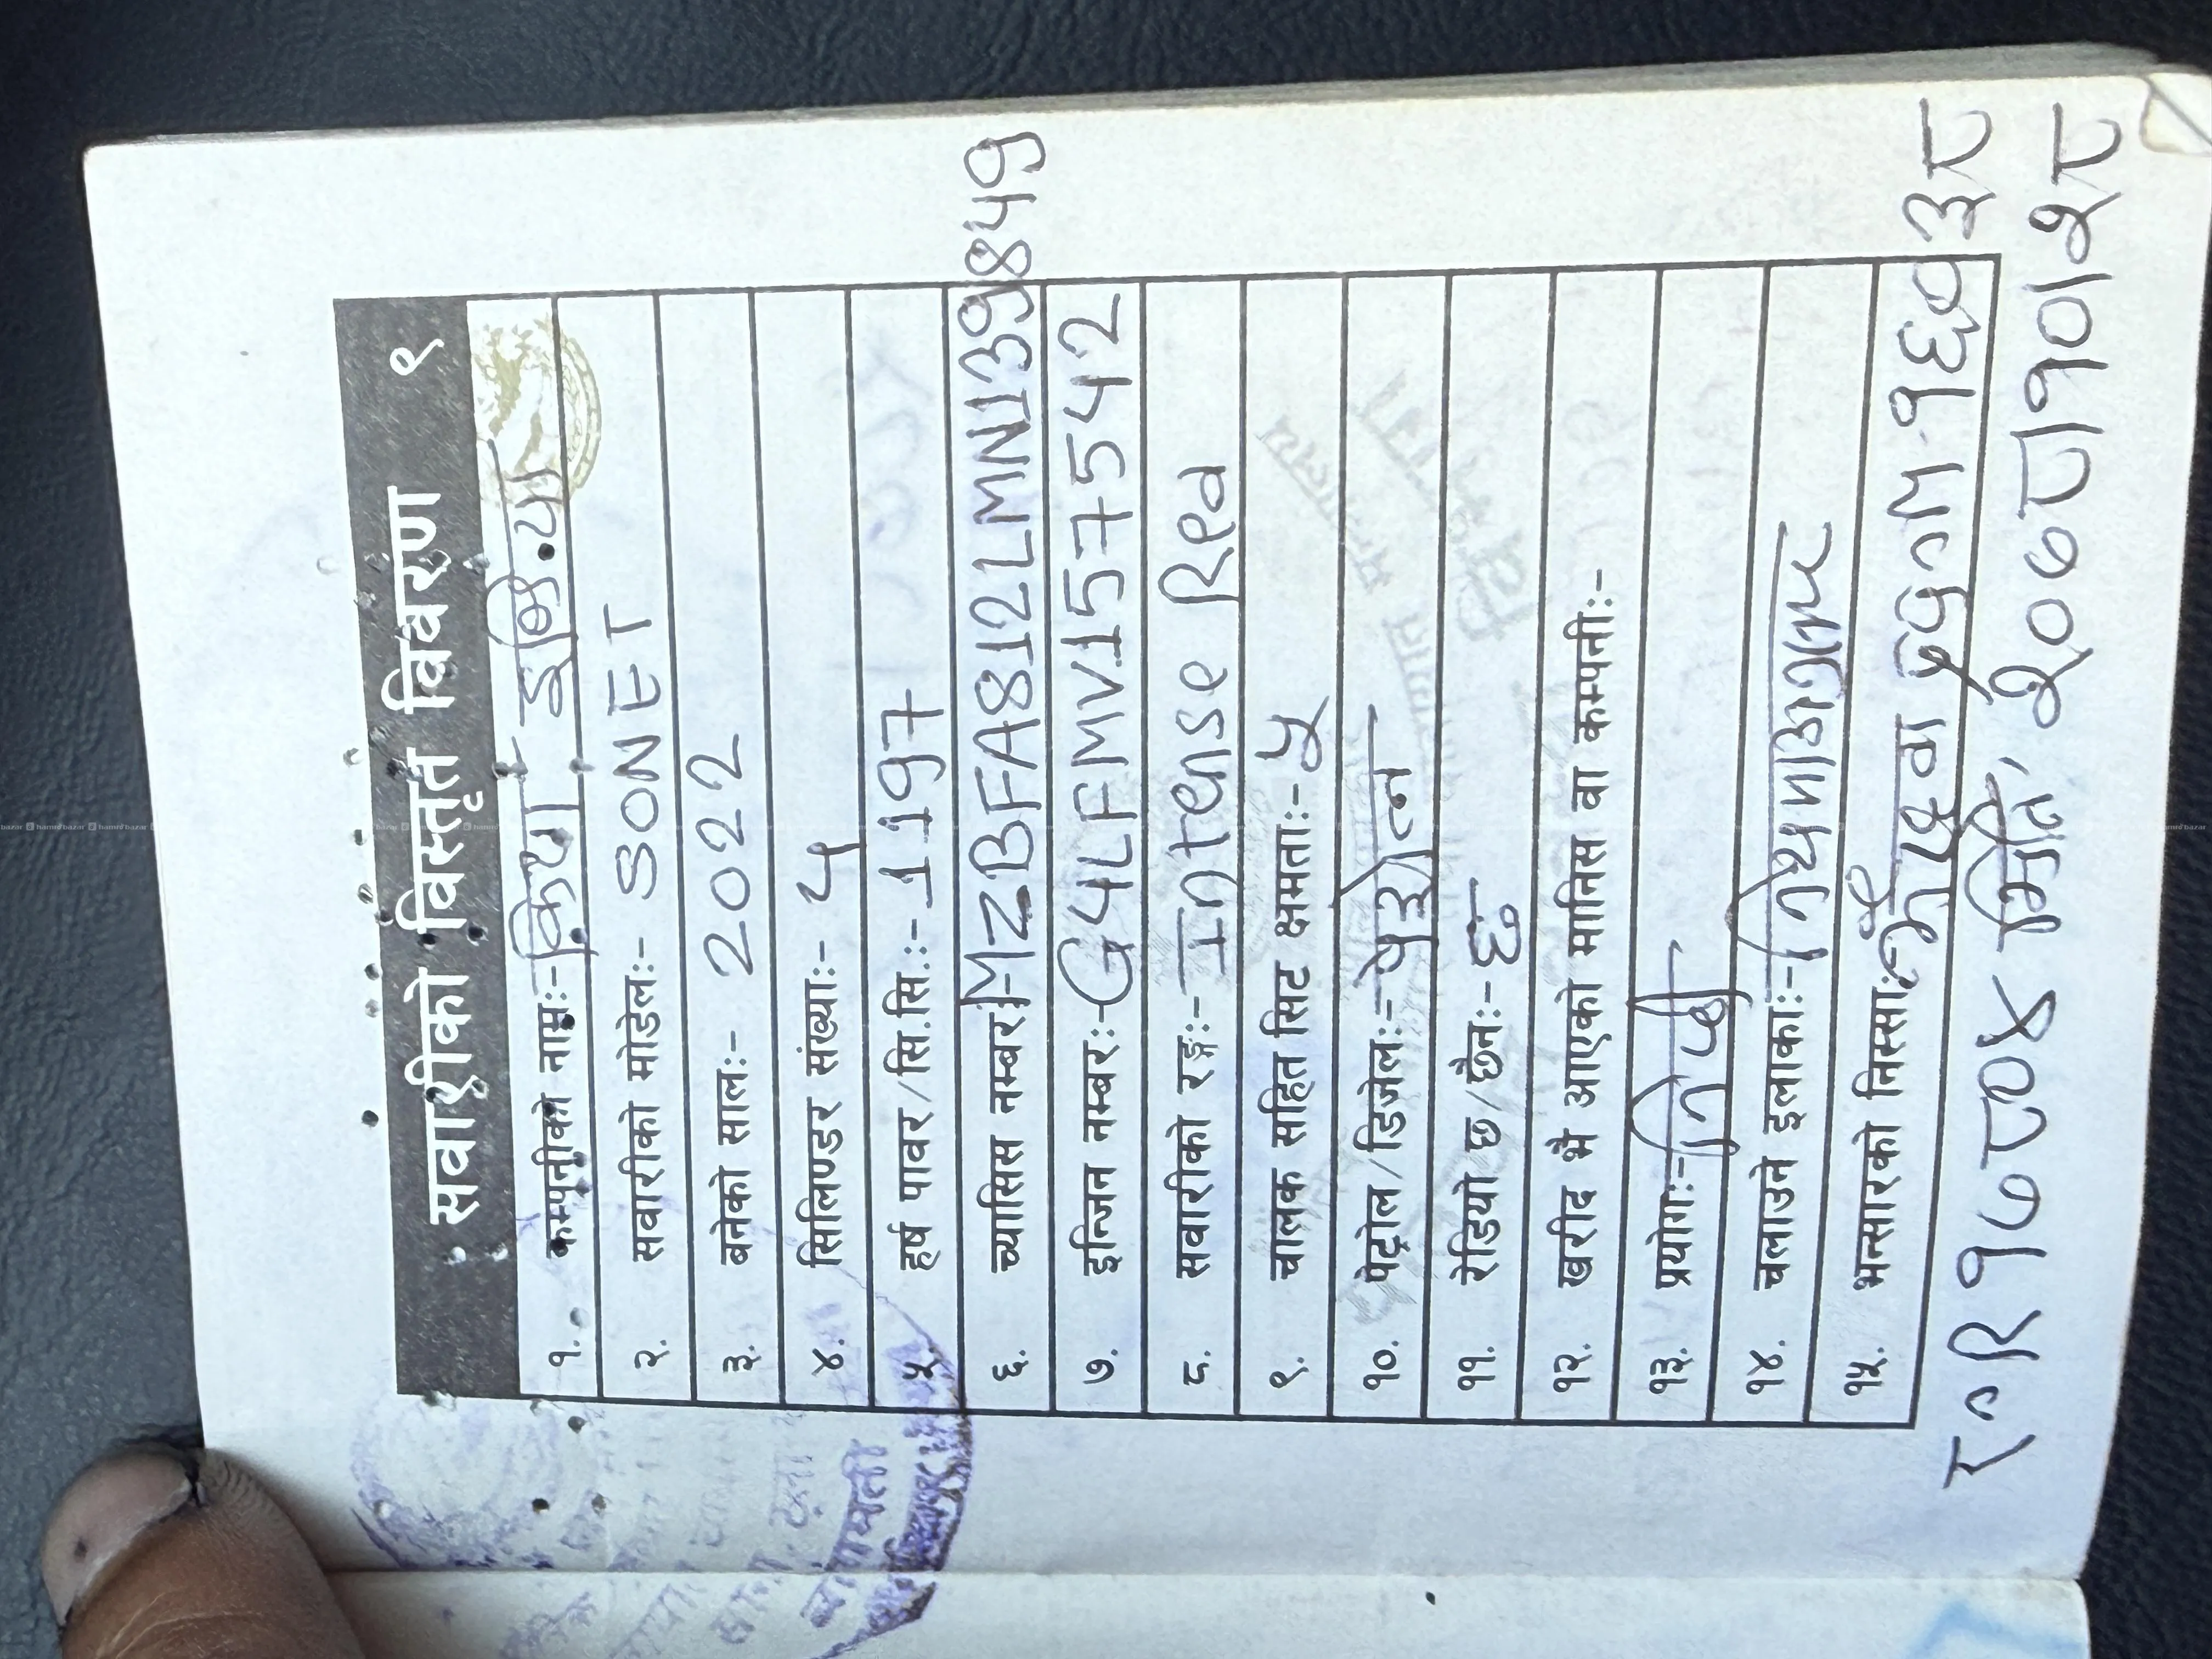 सवारीको विस्तृत विवरण १
१. कम्पनीको नामः- किया इण्डिया
२. सवारीको मोडेलः- SONET
३. बनेको सालः- 2022
४. सिलिण्डर संख्याः- ४
५. हर्ष पावर/सि.सि.:- 1197
६. च्यासिस नम्बरः- MZBFA812LMN139849
७. इन्जिन नम्बरः- G4LFMV157542
८. सवारीको रङ्गः- Intense Red
९. चालक सहित सिट क्षमताः- ५
१०. पेट्रोल/डिजेलः- पेट्रोल
११. रेडियो छ/छैनः- छ
१२. खरीद भै आएको मानिस वा कम्पनी:-
१३. प्रयोगः- निजी
१४. चलाउने इलाकाः- नियमानुसार
१५. भन्सारको निस्साः
मिति २०७८।१०।२८